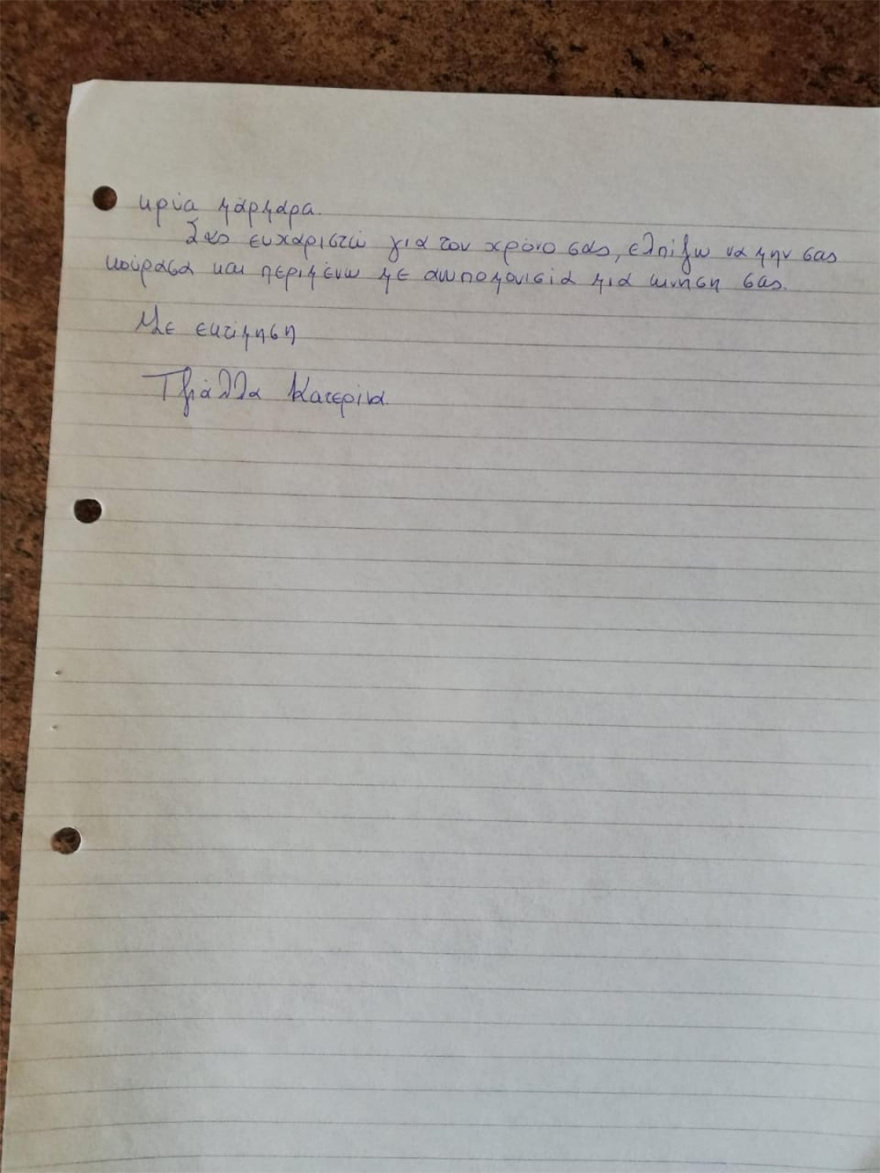 κρύα μάρμαρα.
Σας ευχαριστώ για τον χρόνο σας, ελπίζω να μην σας
κούρασα και περιμένω με ανυπομονισία μια κινηση σας.
Με εκτίμηση
Τζιάλλα Κατερίνα